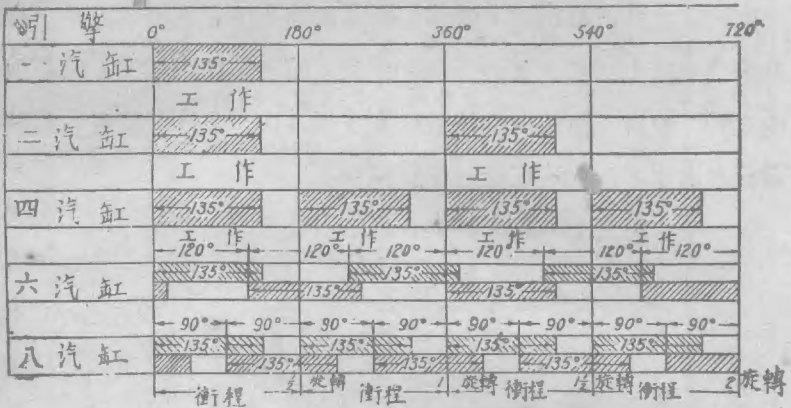 引擎 0° 180° 360° 540° 720°
一汽缸 135°
工作
二汽缸 135° 135°
工作 工作
四汽缸 135° 135° 135° 135°
工作 工作 工作 工作
120° 120° 120° 120° 120° 120°
135° 135° 135°
六汽缸 135° 135°
90° 90° 90° 90° 90° 90° 90° 90°
135° 135° 135° 135°
八汽缸 135° 135° 135°
衝程 ½旋轉 衝程 1旋轉 衝程 1½旋轉 衝程 2旋轉